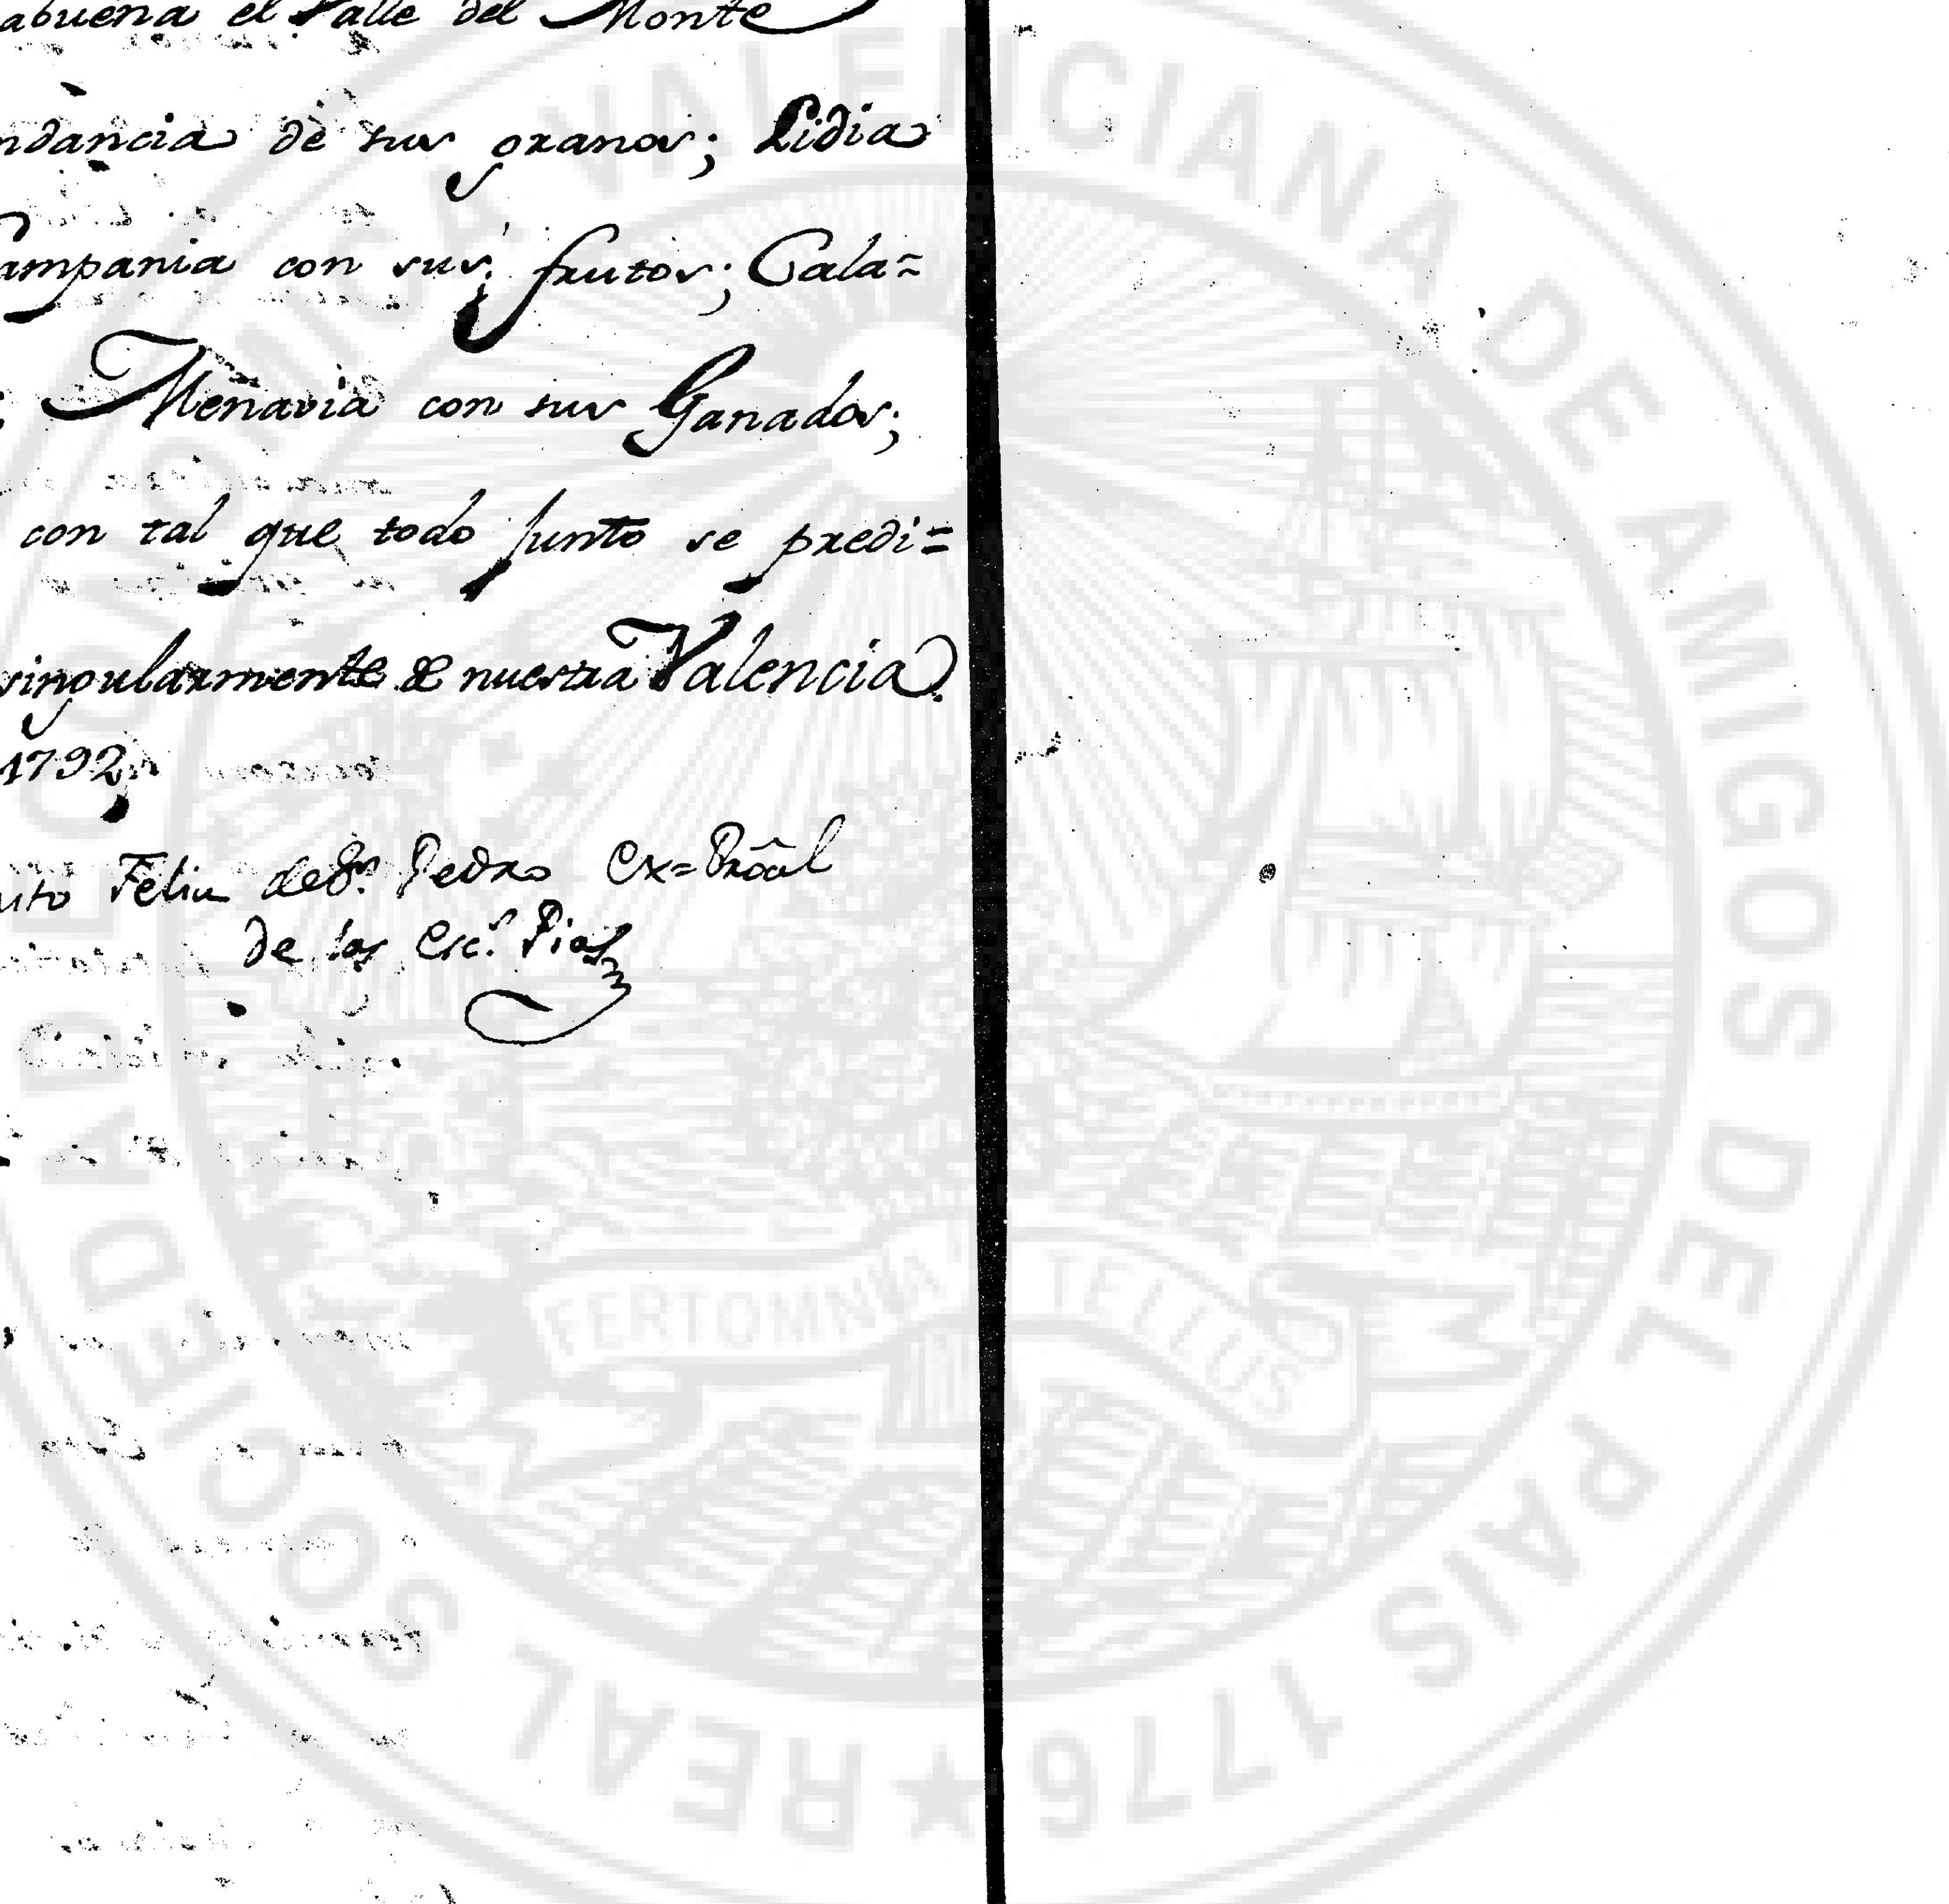 abuena el Valle del Monte
ndancia de sus granos; Lidia
ampania con sus frutos; Cala=
Menavia con sus Ganados;
con tal que todo junto se predi=
singularmente de nuestra Valencia.
1792.
uto Feliu de Sn. Pedro Ex=Prõal
de las Escs. Pias
REAL SOCIEDAD ECONOMICA VALENCIANA DE AMIGOS DEL PAIS 1776
FERT OMNIA TELLUS